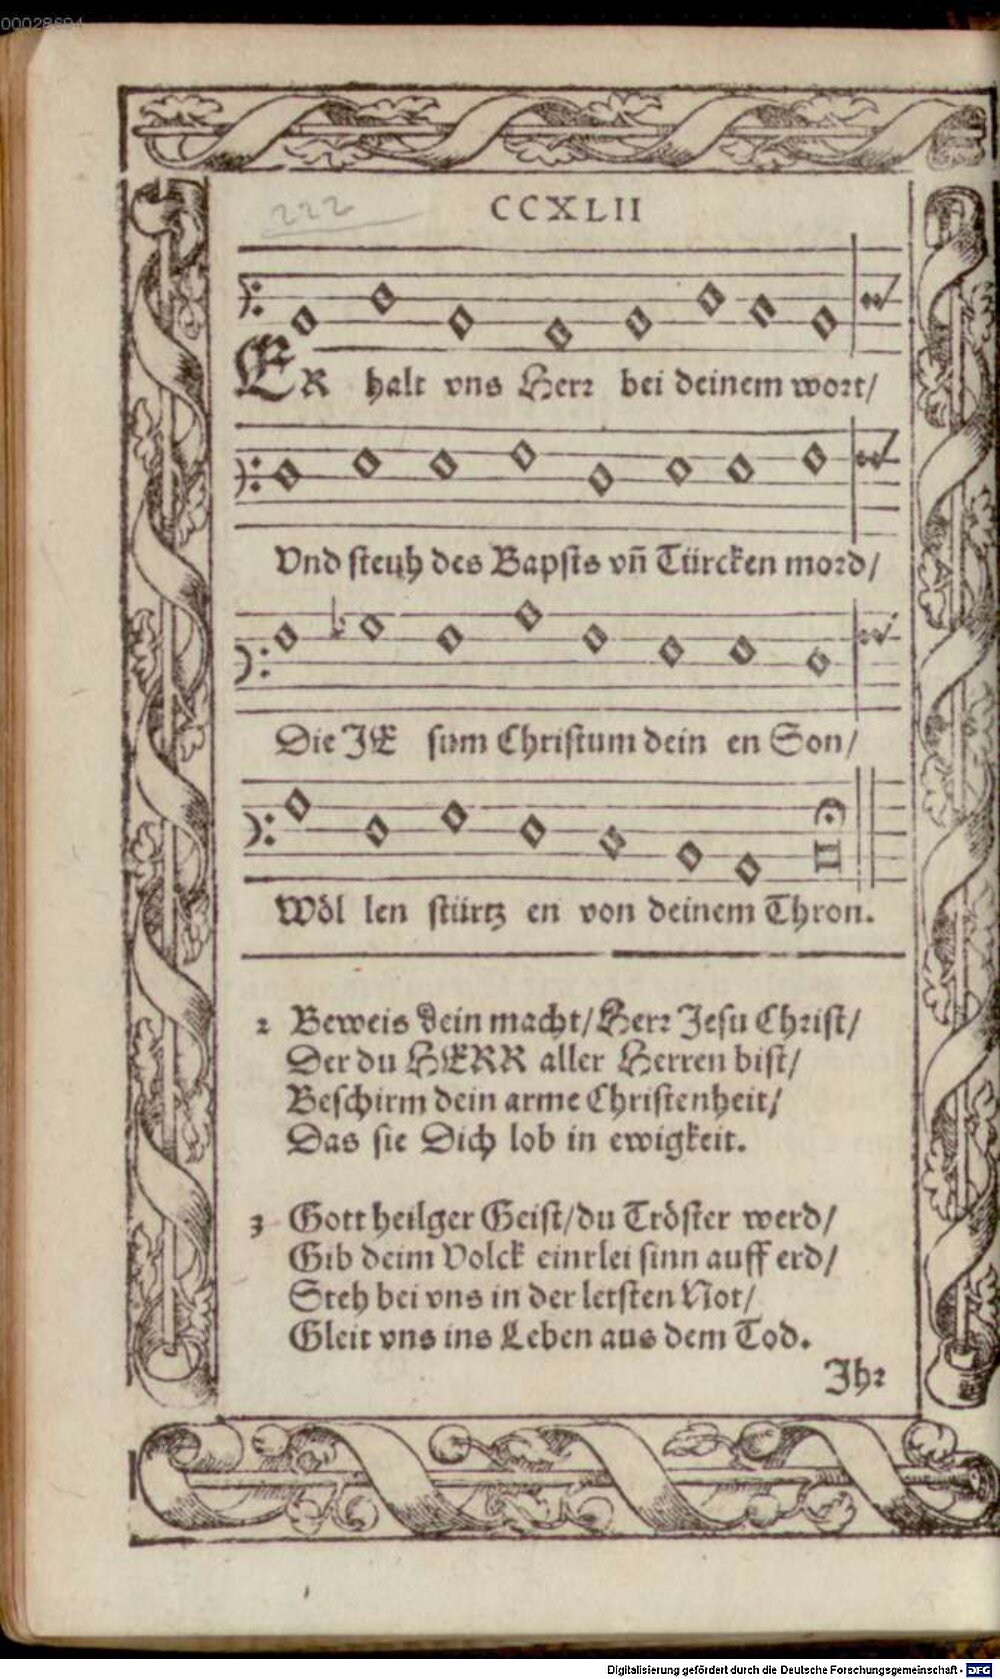 00028694
222
CCXLII
ER halt vns Herr bei deinem wort/
Vnd steuh des Bapsts vñ Türcken mord/
Die JE sum Christum dein en Son/
Wöl len stürtz en von deinem Thron.
2 Beweis dein macht/Herr Jesu Christ/
Der du HERR aller Herren bist/
Beschirm dein arme Christenheit/
Das sie Dich lob in ewigkeit.
3 Gott heilger Geist/du Tröster werd/
Gib deim Volck einrlei sinn auff erd/
Steh bei vns in der letsten Not/
Gleit vns ins Leben aus dem Tod.
Ihr
Digitalisierung gefördert durch die Deutsche Forschungsgemeinschaft - DFG